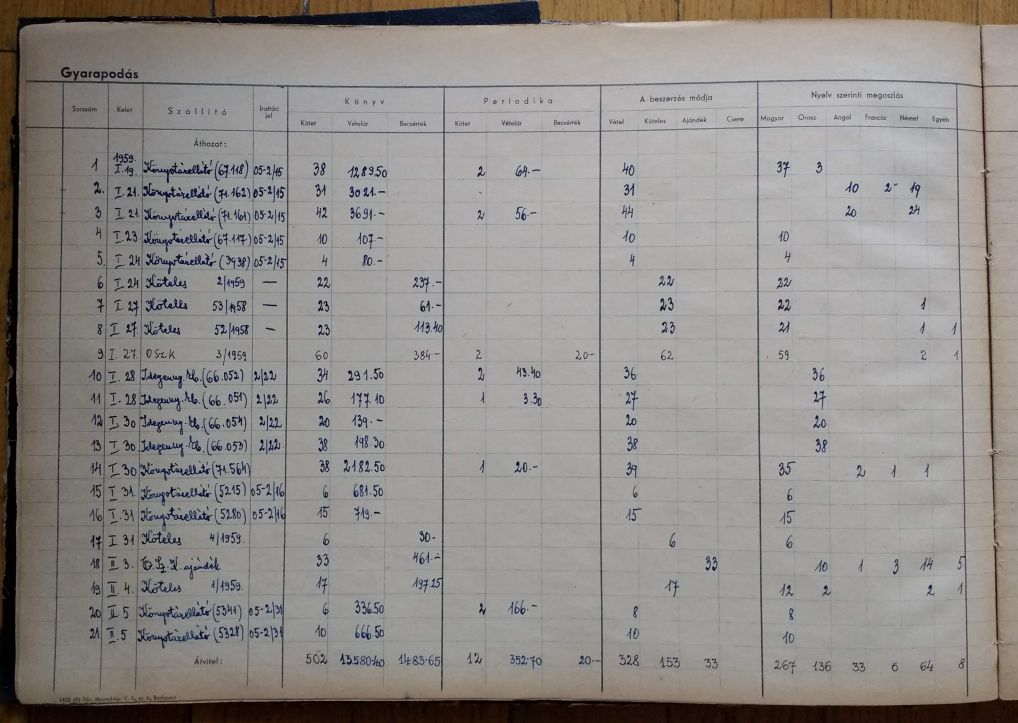 Gyarapodás
Sorszám Kelet Szállító Irattári jel Könyv Periodika A beszerzés módja Nyelv szerinti megoszlás
Kötet Vételár Becsérték Kötet Vételár Becsérték Vétel Köteles Ajándék Csere Magyar Orosz Angol Francia Német Egyéb
Áthozat:
1 1959. I.19. Könyvtárellátó (67.118) 05-2/15 38 1289.50 2 64.- 40 37 3
2. I.21. Könyvtárellátó (71.162) 05-2/15 31 3021.- 31 10 2 19
3 I.21 Könyvtárellátó (71.161) 05-2/15 42 3691.- 2 56.- 44 20 24
4 I.23 Könyvtárellátó (67.117) 05-2/15 10 107.- 10 10
5. I.24 Könyvtárellátó (3938) 05-2/15 4 80.- 4 4
6 I.24 Köteles 2/1959 — 22 237.- 22 22
7 I.27 Köteles 53/1958 — 23 61.- 23 22 1
8 I.27. Köteles 52/1958 — 23 113.40 23 21 1 1
9 I.27. OSzK 3/1959 60 384- 2 20- 62 59 2 1
10 I.28 Idegenny. (66.052) 2/22 34 291.50 2 43.40 36 36
11 I.28 Idegenny. (66.051) 2/22 26 177.10 1 3.30 27 27
12 I.30 Idegenny. (66.054) 2/22 20 139.- 20 20
13 I.30 Idegenny. (66.053) 2/22. 38 198.30 38 38
14 I.30 Könyvtárellátó (71.564) 38 2182.50 1 20.- 39 35 2 1 1
15 I.31. Könyvtárellátó (5215) 05-2/16 6 681.50 6 6
16 I.31 Könyvtárellátó (5280) 05-2/16 15 719.- 15 15
17 I.31 Köteles 4/1959. 6 30- 6 6
18 II.3. O.Sz.K. ajándék 33 461.- 33 10 1 3 14 5
19 II.4. Köteles 1/1959. 17 197.25 17 12 2 2 1
20 II.5 Könyvtárellátó (5341) 05-2/31 6 336.50 2 166.- 8 8
21 II.5 Könyvtárellátó (5328) 05-2/31 10 666.50 10 10
Átvitel: 502 13580.40 1483.65 12 352.70 20.- 328 153 33 267 136 33 6 64 8